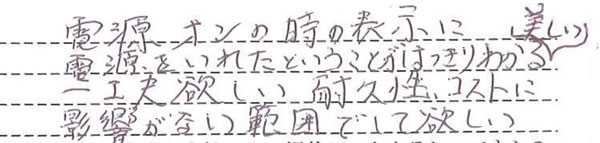 電源オンの時の表示に 美しい
電源をいれたということがはっきりわかる
一工夫欲しい 耐久性、コストに
影響がない範囲でして欲しい